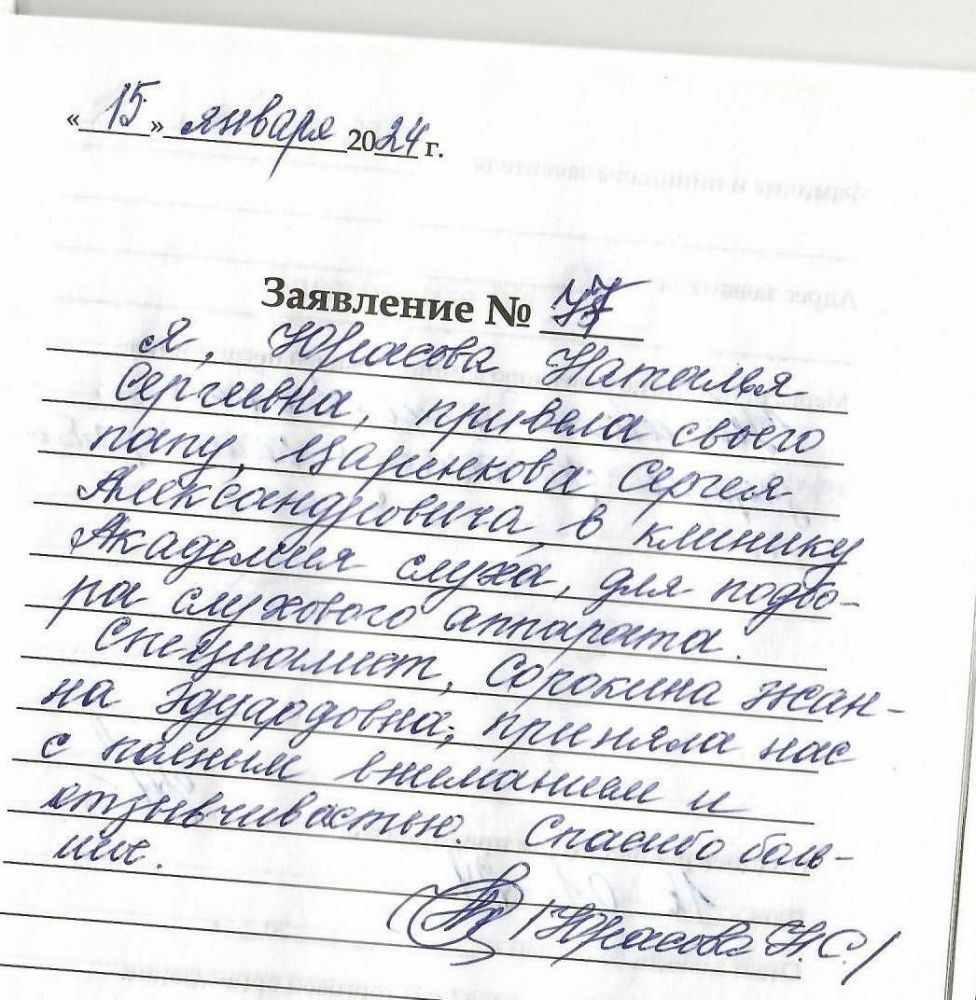 « 15 » января 2024 г.
Заявление № 77
Я, Юрасова Наталья
Сергеевна, привела своего
папу, Царенкова Сергея
Александровича, в клинику
Академия слуха, для подбо-
ра слухового аппарата.
Специалист, Сорокина Жан-
на Эдуардовна, приняла нас
с полным вниманием и
отзывчивостью. Спасибо боль-
шое.
/Юрасова Н.С./